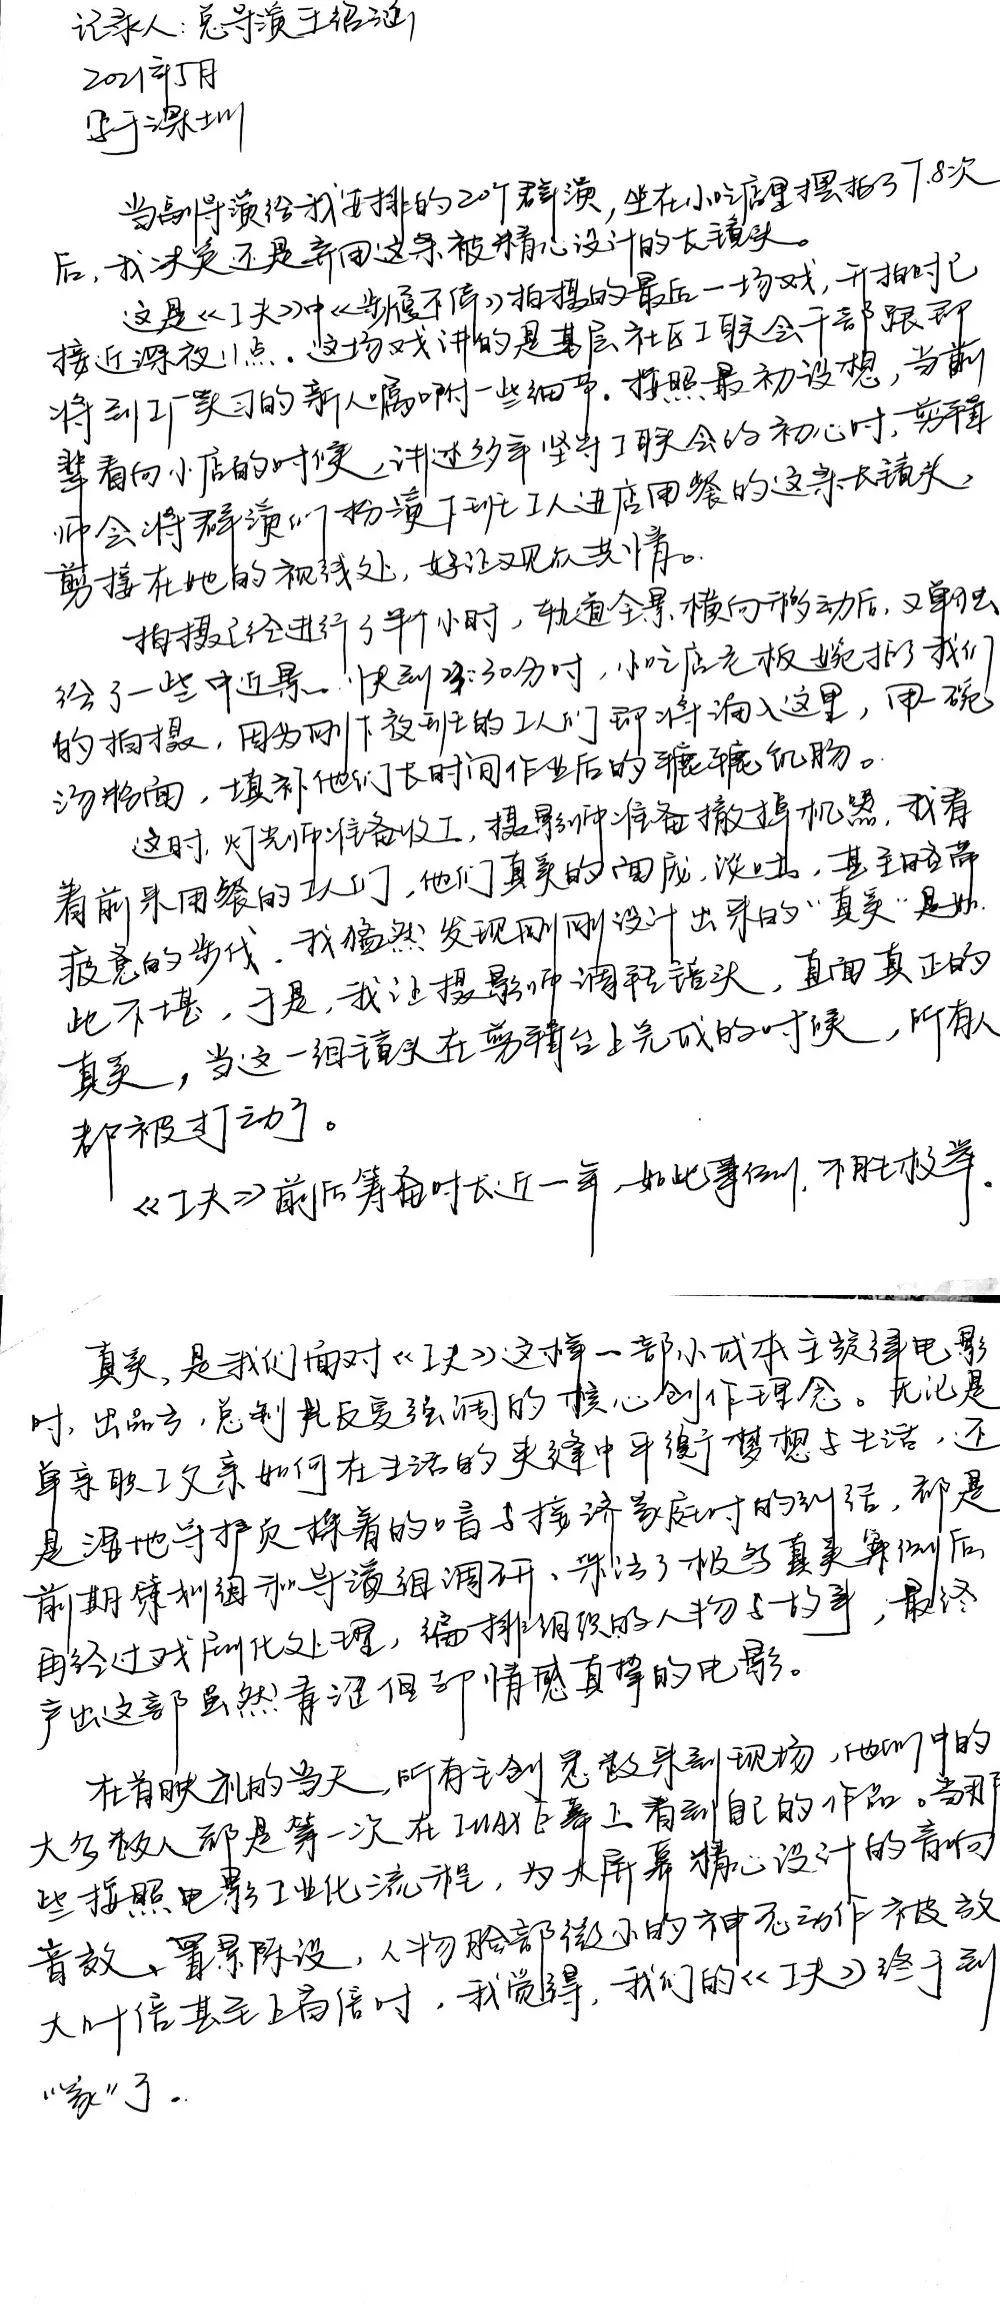 记录人：总导演王绍涵
2021年5月
写于深圳
当副导演给我安排的20个群演，坐在小吃店里摆拍了7.8次
后，我决定还是弃用这条被精心设计的长镜头。
这是《工夫》中《步履不停》拍摄的最后一场戏，开拍时已
接近深夜11点．这场戏讲的是基层社区工联会干部跟即
将到工厂实习的新人嘱咐一些细节．按照最初设想，当前
辈看向小店的时候，讲述多年坚守工联会的初心时，剪辑
师会将群演们扮演下班工人进店用餐的这条长镜头，
剪接在她的视线处，好让观众共情。
拍摄已经进行了半个小时，轨道全景横向移动后，又单独
给了一些中近景。快到:30分时，小吃店老板婉拒了我们
的拍摄，因为刚下夜班的工人们即将涌入这里，用一碗
汤粉面，填补他们长时间作业后的辘辘饥肠。
这时，灯光师准备收工，摄影师准备撤掉机器，我看
着前来用餐的工人们，他们真实的面庞，谈吐，甚至略带
疲惫的步伐．我猛然发现刚刚设计出来的“真实”是如
此不堪，于是，我让摄影师调转镜头，直面真正的
真实，当这一组镜头在剪辑台上完成的时候，所有人
都被打动了。
《工夫》前后筹备时长近一年，如此事例，不胜枚举．
真实，是我们面对《工夫》这样一部小成本主旋律电影
时，出品方，总制片反复强调的核心创作理念。无论是
单亲职工父亲如何在生活的夹缝中平衡梦想与生活，还
是湿地守护员探着的喑与接济家庭时的纠结，都是
前期策划组和导演组调研、采访了极多真实案例后
再经过戏剧化处理，编排组织的人物与故事，最终
产出这部虽然青涩但却情感真挚的电影。
在首映礼的当天，所有主创悉数来到现场，他们中的
大多数人都是第一次在IMAX巨幕上看到自己的作品。当那
些按照电影工业化流程，为大屏幕精心设计的音响
音效、置景陈设，人物脸部微小的神态动作被放
大叶倍甚至上百倍时，我觉得，我们的《工夫》终于到
“家”了．